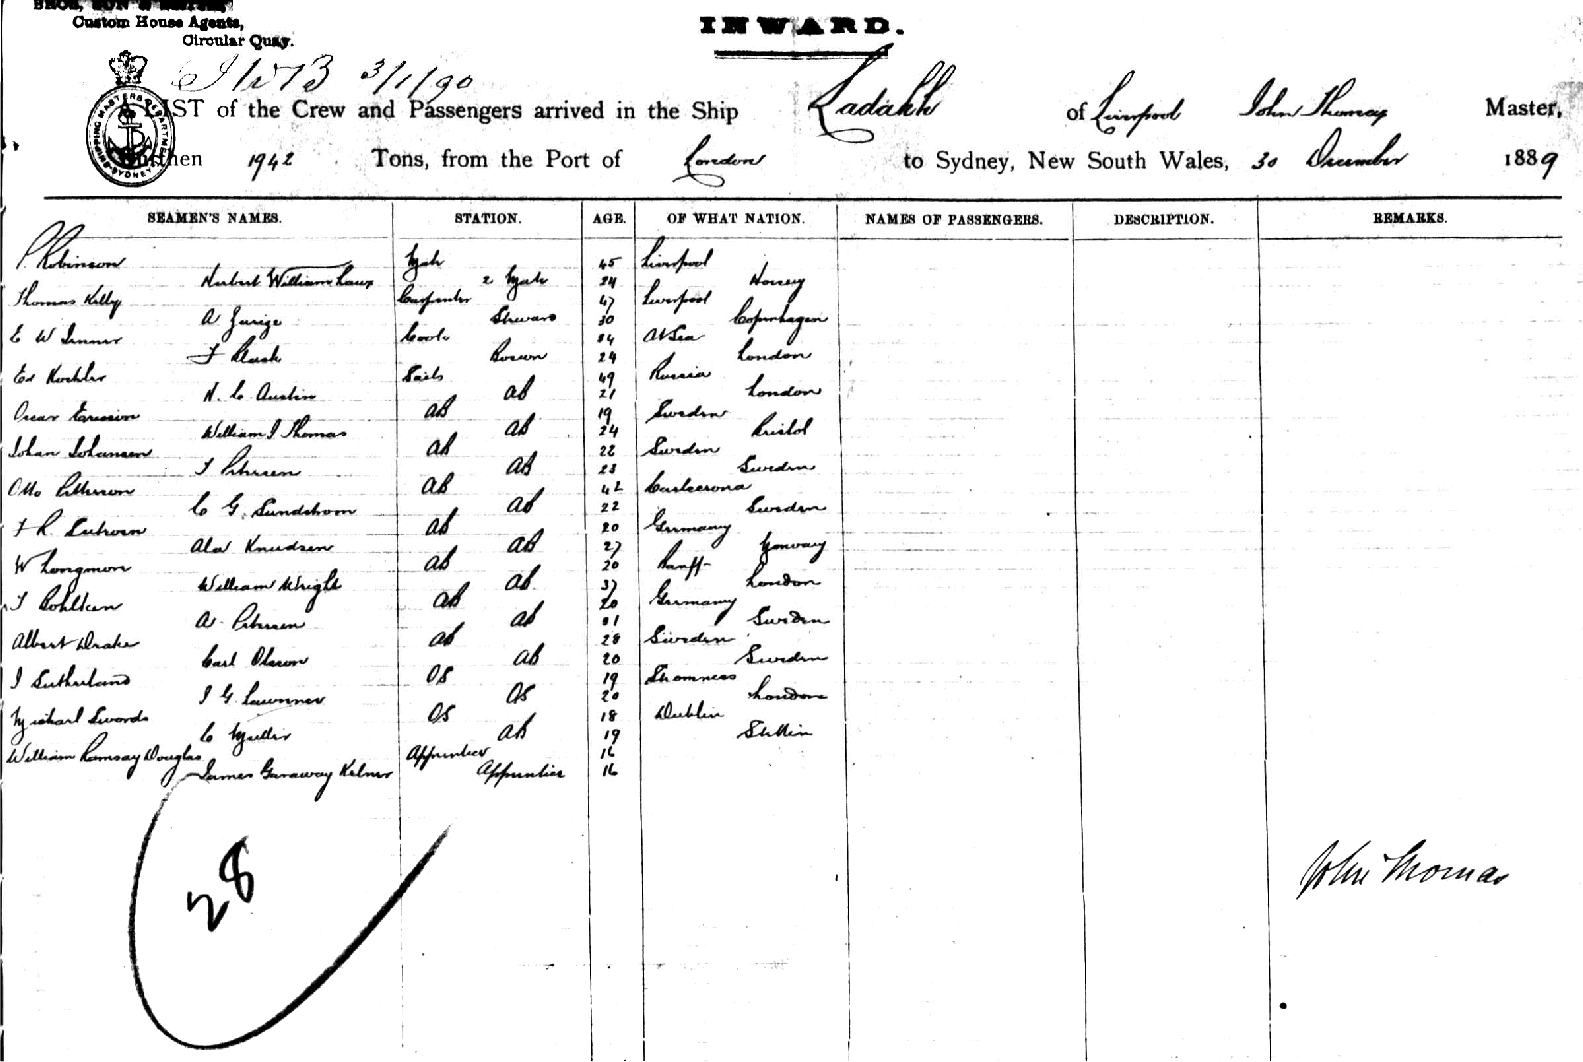 Custom House Agents,
Circular Quay.
INWARD.
3/1/90
LIST of the Crew and Passengers arrived in the Ship Ladakh of Liverpool John Thomas Master,
Burthen 1942 Tons, from the Port of London to Sydney, New South Wales, 30 December 1889
SEAMEN'S NAMES. STATION. AGE. OF WHAT NATION. NAMES OF PASSENGERS. DESCRIPTION. REMARKS.
P. Robinson Mate 45 Liverpool
Herbert William 2 Mate 24
Thomas Kelly Carpenter 47 Liverpool
A Steward 30 Copenhagen
E W Cook 34 At Sea
F Bosun 24 London
Ed Koehler Sails 49 Russia
H. C Austin AB 21 London
Oscar Ericsson AB 19 Sweden
William J Thomas AB 24 Bristol
Johan Johansen AB 22 Sweden
F Petersen AB 23 Sweden
Otto Petterson AB 42 Carlscrona
C G. Sundstrom AB 22 Sweden
AB 20 Germany
Knudsen AB 27 Norway
W Longmon AB 20 Banff
William Wright AB 37 London
AB 20 Germany
A. Petersen AB Sweden
Albert Drake AB 28 Sweden
Carl Olsson AB 20 Sweden
J Sutherland OS 19 Stromness
J G. OS 20 London
Michael Swords OS 18 Dublin
C Muller AB 19 Stettin
William Ramsay Douglas Apprentice 16
James Garaway Apprentice 16
28
John Thomas